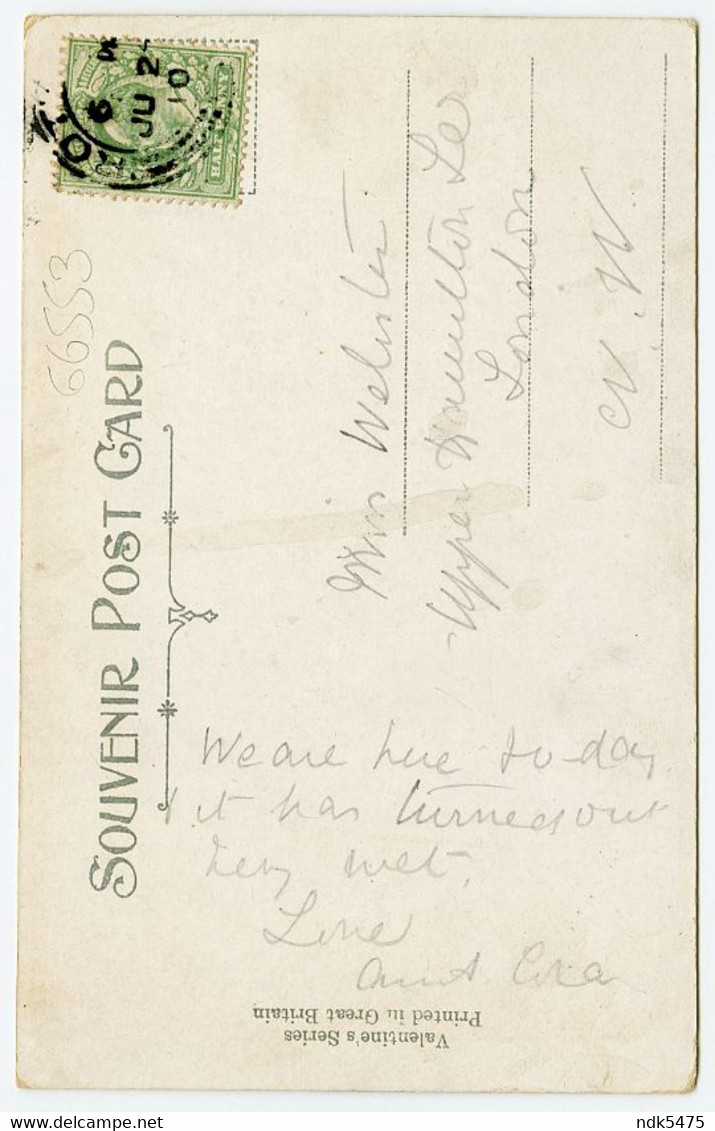 SOUVENIR POST CARD
66553
HALFPENNY
6
JU 2
10
Miss Webster
Upper Hamilton Ter
London
N.W.
We are here to-day
& it has turned out
very wet.
Love
Aunt Cora
Valentine's Series
Printed in Great Britain
ndk5475